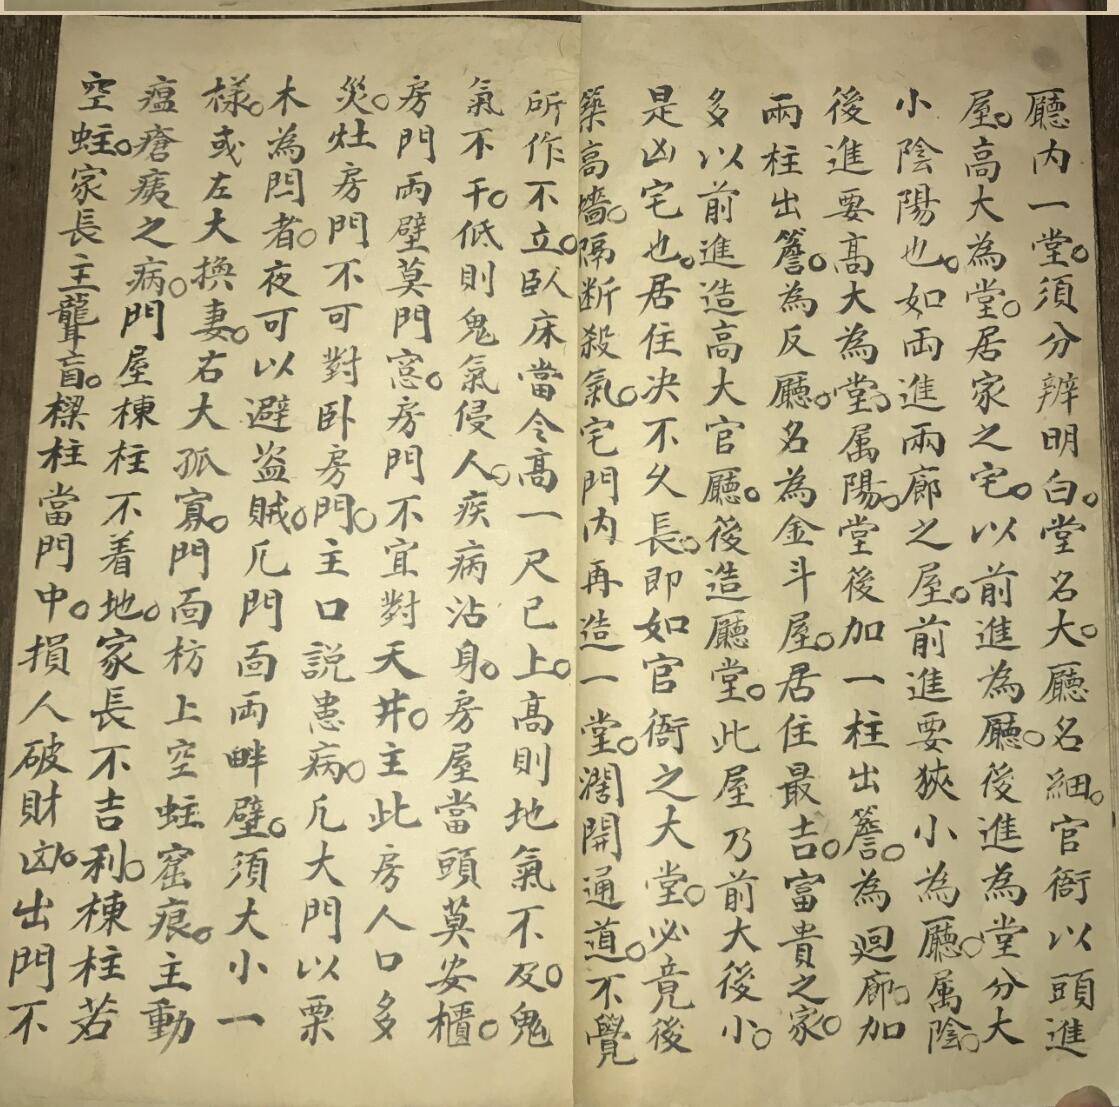 廳内一堂。須分辨明白。堂名大。廳名細。官衙以頭進
屋。高大為堂。居家之宅。以前進為廳。後進為堂分大
小陰陽也。如両進兩廊之屋。前進要狹小為廳。属陰。
後進要高大為堂。属陽。堂後加一柱出簷。為廻廊。加
兩柱出簷。為反廳。名為金斗屋。居住最吉。富貴之家。
多以前進造高大官廳。後造廳堂。此屋乃前大後小。
是凶宅也。居住决不久長。即如官衙之大堂。必竟後
築高墻。隔断殺氣。宅門内再造一堂。濶開通道。不覺
所作不立。臥床當令高一尺已上。高則地氣不及。鬼
氣不干。低則鬼氣侵人。疾病沾身。房屋當頭莫安櫃。
房門兩壁莫門窓。房門不宜對天井。主此房人口多
災。灶房門不可對卧房門。主口説患病。凡大門以栗
木為閂者。夜可以避盗賊。凡門面両畔壁。須大小一
樣。或左大換妻。右大孤寡。門面枋上空蛀窟痕。主動
瘟瘡痍之病。門屋棟柱不着地。家長不吉利。棟柱若
空蛀。家長主聾盲。樑柱當門中。損人破財凶。出門不